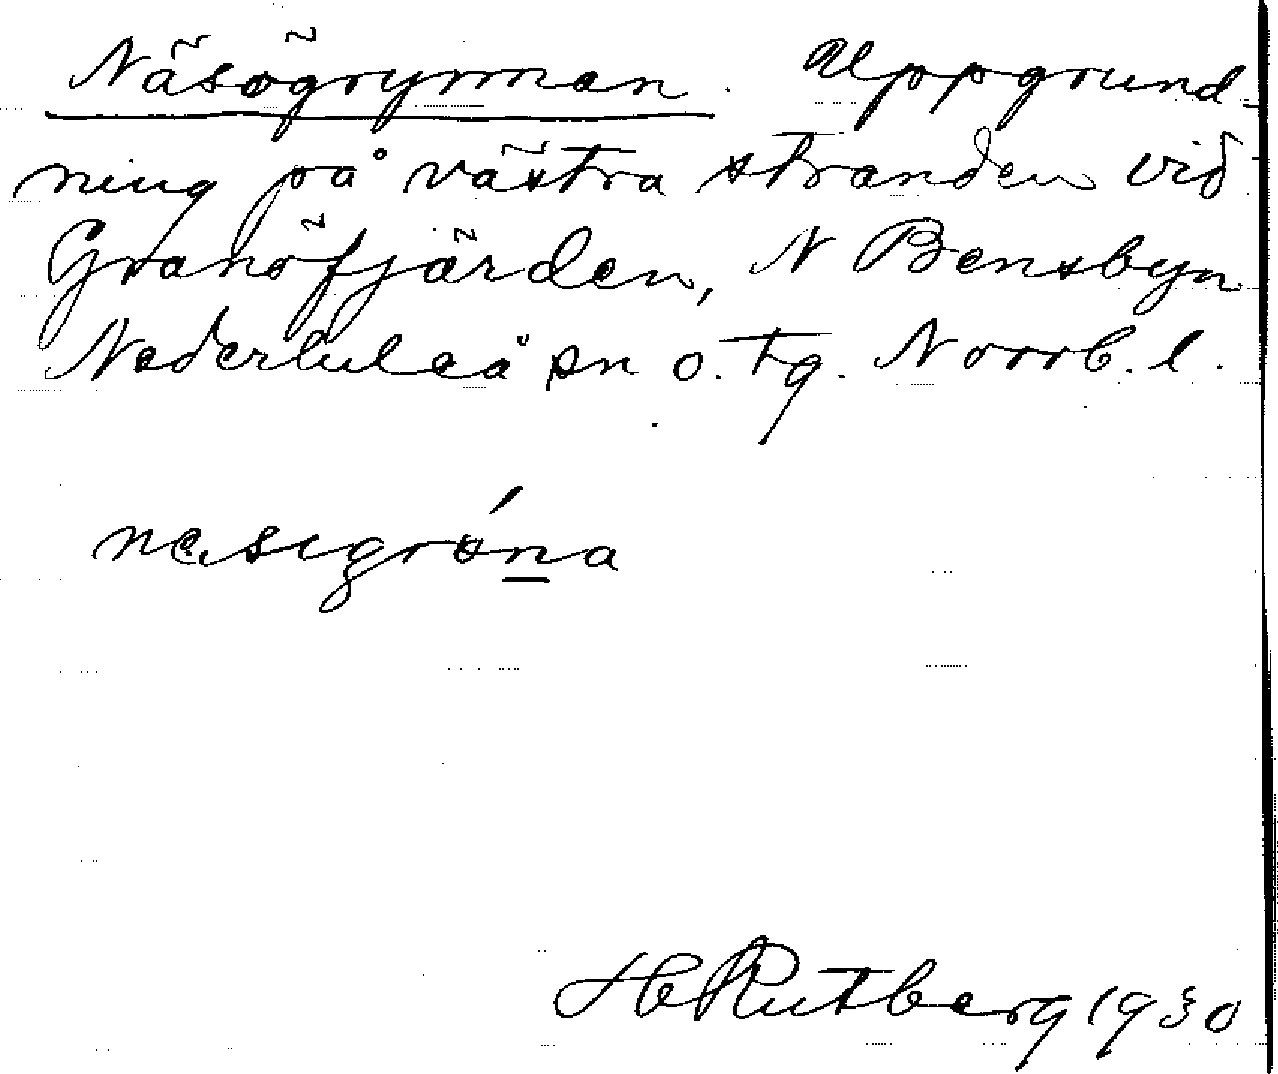 Näsögrynnan. Uppgrund-
ning på västra stranden vid
Granöfjärden, N Bensbyn
Nederluleå sn o. tg. Norrb. l.
H Rutberg 1930